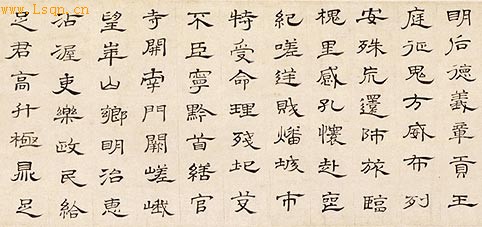 www.Lsqn.cn
明后德義章貢王
庭征鬼方威布列
安殊巟還師旅臨
槐里感孔懷赴喪
紀嗟逆賊燔城市
特受命理殘圮芟
不臣寧黔首繕官
寺開南門闕嵯峨
望崋山鄉明治惠
沾渥吏樂政民給
足君高升極鼎足